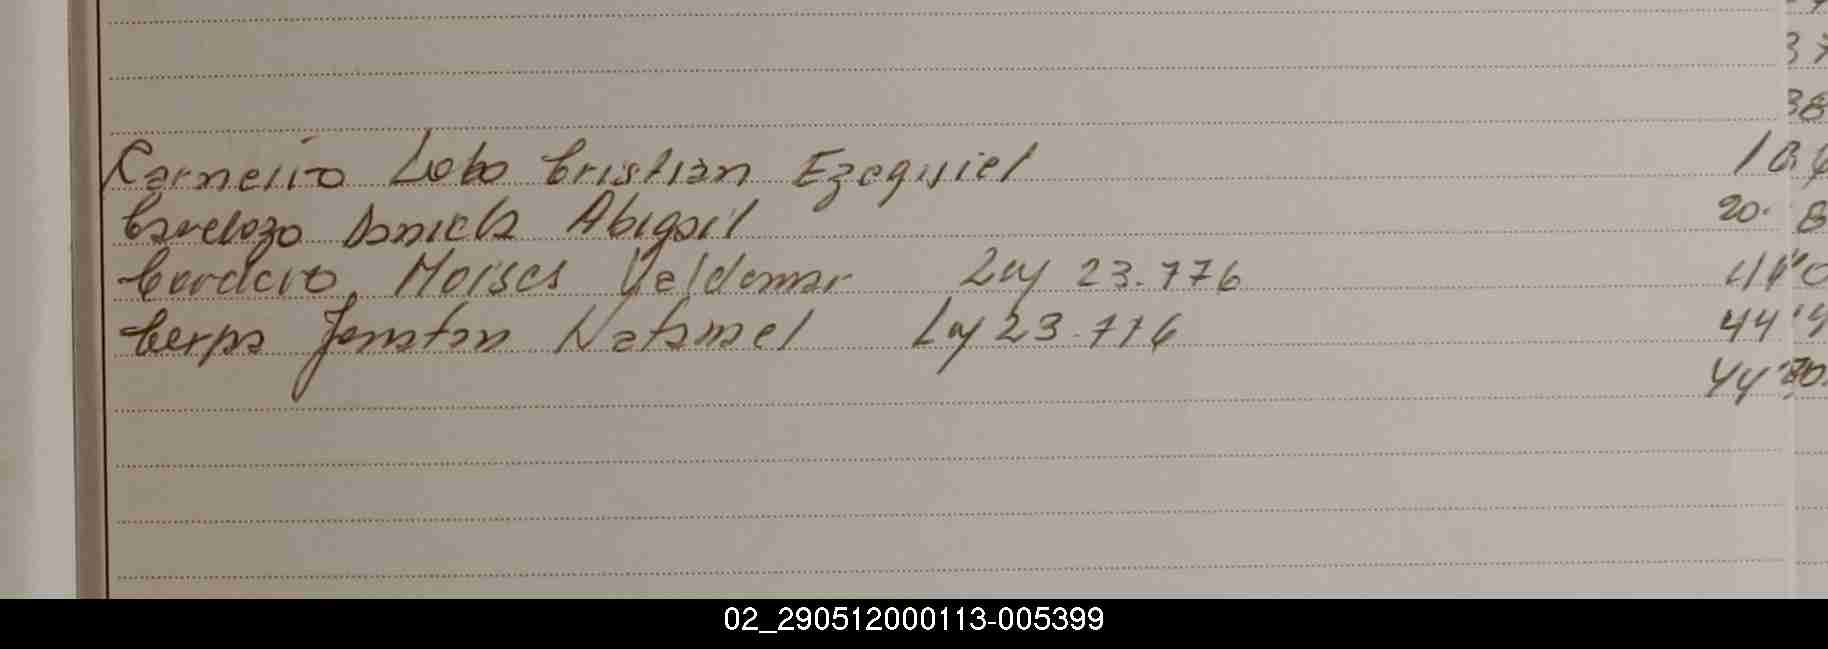 37
38
Carneiro Lobo Cristian Ezequiel
Cardozo Daniela Abigail 20.
Cordero, Moises Valdemar Ley 23.776
Cerpa Jonatan Natanael Ley 23.776 44
44
02_290512000113-005399